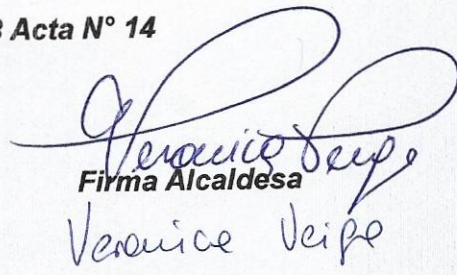 3 Acta N° 14
Veronica Veiga
Firma Alcaldesa
Veronica Veiga